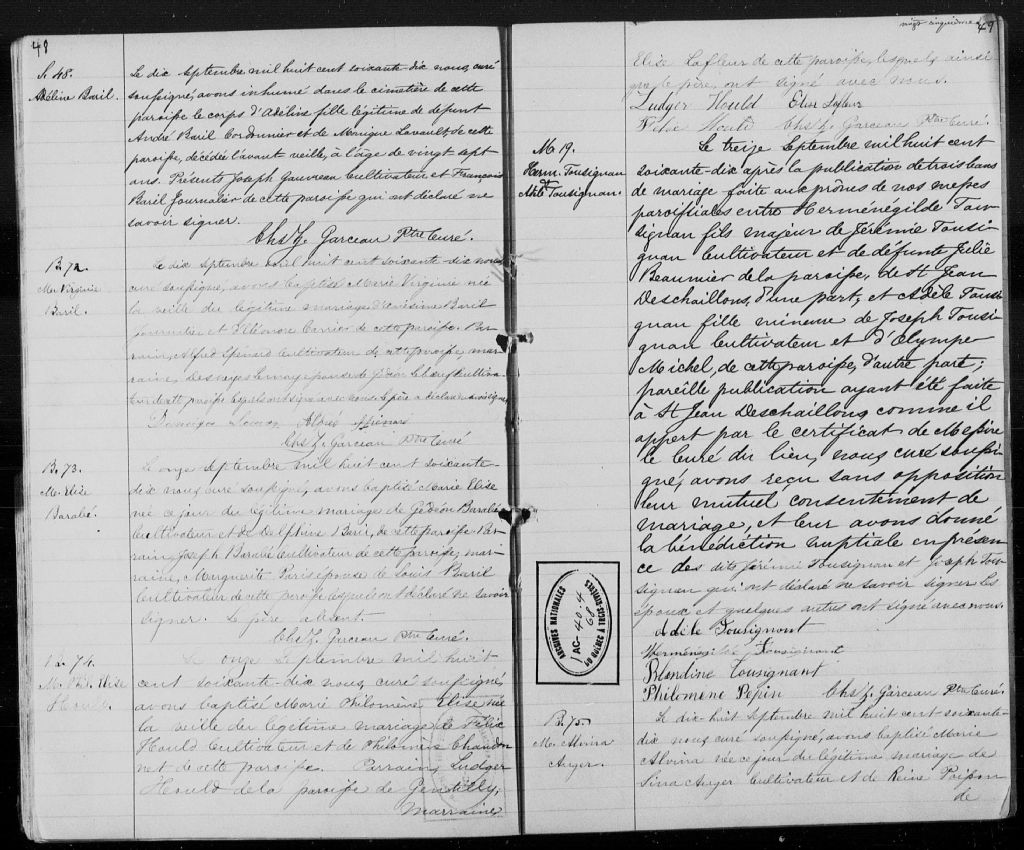 48
S. 48.
Adéline Baril.
Le dix septembre mil huit cent soixante-dix nous, curé
soussigné, avons inhumé dans le cimetière de cette
paroisse le corps d'Adéline fille légitime de defunt
André Baril Cordonnier et de Monique Lavault de cette
paroisse, décédée l'avant veille, à l'âge de vingt sept
ans. Présents Joseph Gauvreau Cultivateur et François
Baril Journalier de cette paroisse qui ont déclaré ne
savoir signer.
Chs Z. Garceau Ptre Curé.
B. 72.
M. Virginie
Baril.
Le dix septembre mil huit cent soixante-dix nous
curé soussigné, avons baptisé Marie Virginie née
la veille du légitime mariage d'Onésime Baril
Journalier et d'Eléonore Carrier de cette paroisse. Par-
rain, Alfred Cultivateur de cette paroisse, mar-
raine, épouse de Gédéon Leboeuf Cultiva-
teur de cette paroisse lesquels ont signé avec nous. Le père a déclaré ne savoir signer.
Alfred
Chs Z. Garceau Ptre Curé
B. 73.
M. Elise
Barabé.
Le onze septembre mil huit cent soixante-
dix nous, curé soussigné, avons baptisé Marie Elise
née ce jour du légitime mariage de Gédéon Barabé
Cultivateur et de Delphine Baril, de cette paroisse Par-
rain, Joseph Barabé Cultivateur de cette paroisse, mar-
raine, Marguerite Paris épouse de Louis Baril
Cultivateur de cette paroisse lesquels ont déclaré ne savoir
signer. Le père absent.
Chs Z. Garceau Ptre Curé.
B. 74.
M. Phil. Elise
Hould.
Le onze septembre mil huit
cent soixante-dix nous, curé soussigné,
avons baptisé Marie Philomène Elise née
la veille du légitime mariage de Félix
Hould Cultivateur et de Philomène Chandon
net de cette paroisse. Parrain, Ludger
Hould de la paroisse de Gentilly,
Marraine,
vingt cinquième
49
Elise Lafleur de cette paroisse, lesquels, ainsi
que le père, ont signé avec nous.
Ludger Hould Elise Lafleur
Félix Hould Chs Z. Garceau Ptre Curé.
M. 19.
Herm. Tousignan
et
Adèle Tousignan.
Le treize septembre mil huit cent
soixante-dix après la publication de trois bans
de mariage faite aux prônes de nos messes
paroissiales entre Herménégilde Tou-
signan fils majeur de Jérémie Tousi-
gnan Cultivateur et de défunte Julie
Beaumier de la paroisse, de St Jean
Deschaillons, d'une part; et Adèle Tousi-
gnan fille mineure de Joseph Tousi-
gnan Cultivateur et d'Olympe
Michel, de cette paroisse, d'autre part;
pareille publication ayant été faite
à St Jean Deschaillons, comme il
appert par le certificat de Messire
le Curé du lieu, nous, curé soussi-
gné, avons reçu sans opposition
leur mutuel consentement de
mariage, et leur avons donné
la bénédiction nuptiale en présen-
ce des dits Jérémie Tousignan et Joseph Tou-
signan qui ont déclaré ne savoir signer. Les
époux et quelques autres ont signé avec nous.
Adèle Tousignant
Herménégilde Tousignant
Blandine Tousignant
Philomene Pepin Chs Z. Garceau Ptre Curé.
ARCHIVES NATIONALES
AC-40-4
60
DU QUÉBEC À TROIS-RIVIÈRES
B. 75.
M. Alvina
Auger.
Le dix huit septembre mil huit cent soixante-
dix nous, curé soussigné, avons baptisé Marie
Alvina née ce jour du légitime mariage de
Sina Auger Cultivateur et de Reine Poisson
de